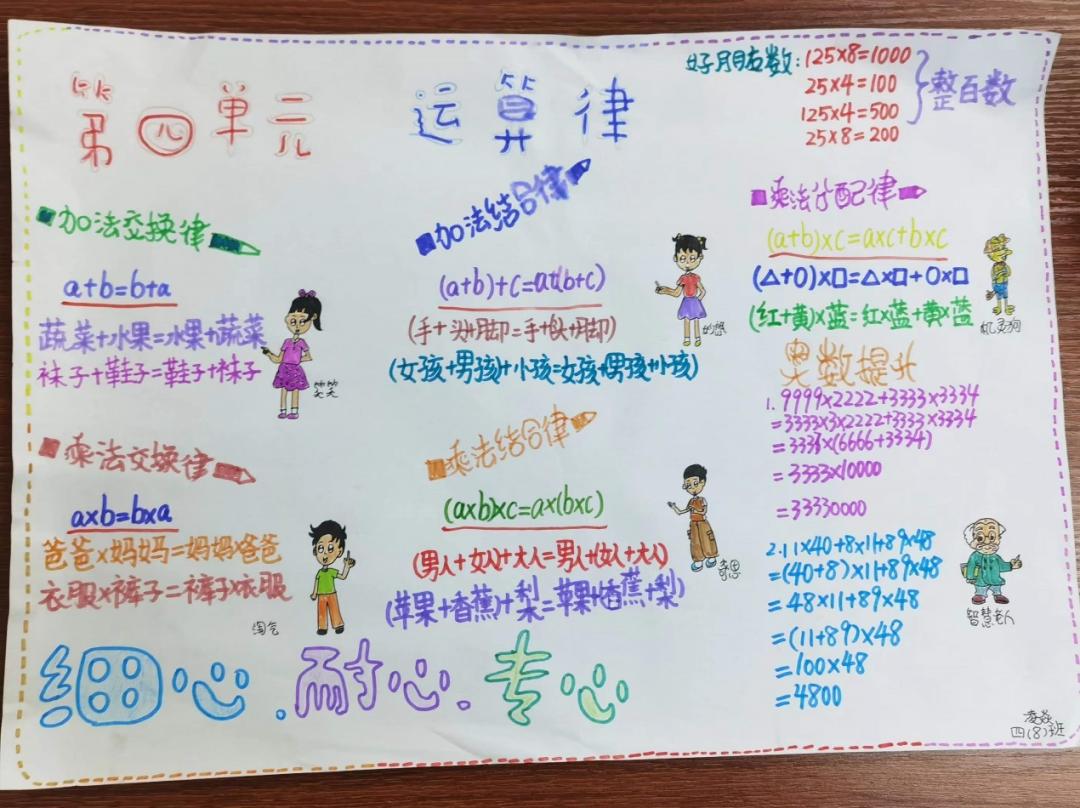 第四单元 运算律
好朋友数:125×8=1000
25×4=100
125×4=500
25×8=200
整百数
加法交换律
a+b=b+a
蔬菜+水果=水果+蔬菜
袜子+鞋子=鞋子+袜子
笑笑
加法结合律
(a+b)+c=a+(b+c)
(手+头)+脚=手+(头+脚)
(女孩+男孩)+小孩=女孩+(男孩+小孩)
妙想
乘法分配律
(a+b)×c=a×c+b×c
(△+○)×□=△×□+○×□
(红+黄)×蓝=红×蓝+黄×蓝
机灵狗
乘法交换律
a×b=b×a
爸爸×妈妈=妈妈×爸爸
衣服×裤子=裤子×衣服
淘气
乘法结合律
(a×b)×c=a×(b×c)
(男人+女人)+大人=男人+(女人+大人)
(苹果+香蕉)+梨=苹果+(香蕉+梨)
奇思
奥数提升
1. 9999×2222+3333×3334
=3333×3×2222+3333×3334
=3333×(6666+3334)
=3333×10000
=33330000
2.11×40+8×11+89×48
=(40+8)×11+89×48
=48×11+89×48
=(11+89)×48
=100×48
=4800
智慧老人
细心.耐心.专心
四(8)班